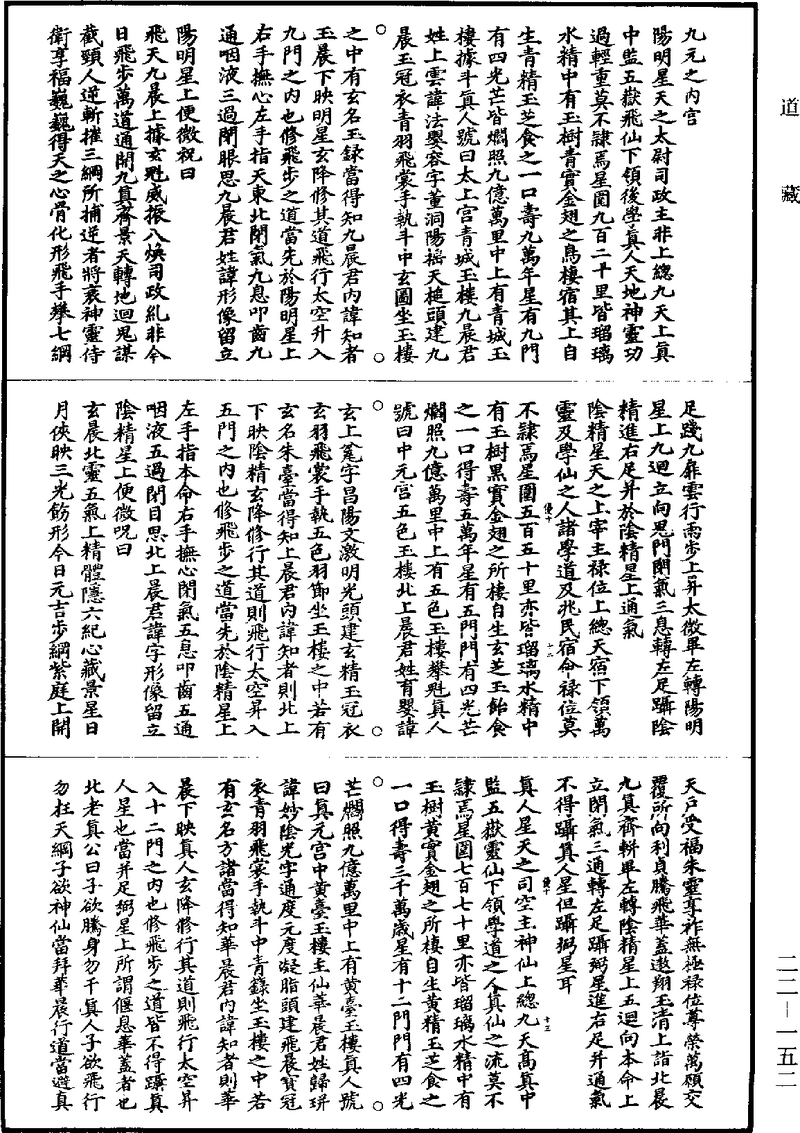 道藏
九元之內宫
陽明星天之太尉司政主非上總九天上真
中監五嶽飛仙下領後學真人天地神靈功
過輕重莫不隷焉星圍九百二十里皆瑠璃
水精中有玉樹青實金翅之鳥棲宿其上自
生青精玉芝食之一口壽九萬年星有九門
有四光芒皆爛照九億萬里中上有青城玉
樓據斗真人號曰太上宫青城玉樓九晨君
姓上雲諱法嬰容字董洞陽𢭏天槌頭建九
晨玉冠衣青羽飛裳手執斗中玄圖坐玉樓
之中有玄名玉録當得知九晨君内諱知者
玉晨下映明星玄降修其道飛行太空升入
九門之内也修飛步之道當先於陽明星上
右手撫心左手指天東北閉氣九息叩齒九
通咽液三過閉眼思九晨君姓諱形像留立
陽明星上便微祝曰
飛天九晨上據玄魁威振八煥司政糺非今
日飛步萬道通開九真齊景天轉地迴鬼謀
截頸人逆斬摧三綱所捕逆者將衰神靈侍
衛享福巍巍得天之心骨化形飛手攀七綱
足踐九扉雲行雨步上昇太微畢左轉陽明
星上九迴立向鬼門閉氣三息轉左足躡陰
精進右足并於陰精星上通氣
陰精星天之上宰主禄位上總天宿下領萬
靈及學仙之人諸學道及兆民宿命禄位莫
不隷焉星圍五百五十里亦皆瑠璃水精中
有玉樹黑實金翅之所棲自生玄芝玉飴食
之一口得壽五萬年星有五門門有四光芒
爛照九億萬里中上有五色玉樓攀魁真人
號曰中元宫五色玉樓北上晨君姓育嬰諱
玄上㝹字昌陽文激明光頭建玄精玉冠衣
玄羽飛裳手執五色羽節坐玉樓之中若有
玄名朱臺當得知上晨君内諱知者則北上
下映陰精玄降修行其道則飛行太空昇入
五門之内也修飛步之道當先於陰精星上
左手指本命右手撫心閉氣五息叩齒五通
咽液五過閉目思北上晨君諱字形像留立
陰精星上便微呪曰
玄晨北靈五氣上精體隱六紀心藏景星日
月俠映三光飭形今日元吉步綱紫庭上開
天戶受福朱靈享祚無極禄位尊榮萬願交
覆所向利貞騰飛華蓋遨翔玉清上詣北晨
九真齊軿畢左轉陰精星上五迴向本命上
立閉氣三通轉左足躡弼星進右足并通氣
不得躡真人星但躡弼星耳
真人星天之司空主神仙上總九天高真中
監五嶽靈仙下領學道之人真仙之流莫不
隷焉星圍七百七十里亦皆瑠璃水精中有
玉樹黄實金翅之所棲自生黄精玉芝食之
一口得壽三千萬歲星有十二門門有四光
芒爛照九億萬里中上有黄臺玉樓真人號
曰真元宫中黄臺玉樓主仙華晨君姓歸玶
諱妙陰光字通度元度凝脂頭建飛晨寳冠
衣青羽飛裳手執斗中青籙坐玉樓之中若
有玄名方諸當得知華晨君内諱知者則華
晨下映真人玄降修行其道則飛行太空昇
入十二門之内也修飛步之道皆不得躡真
人星也當并足弼星上所謂偃息華蓋者也
北老真公曰子欲騰身勿干真人子欲飛行
勿枉天綱子欲神仙當拜華晨行道當避真
二二—一五二